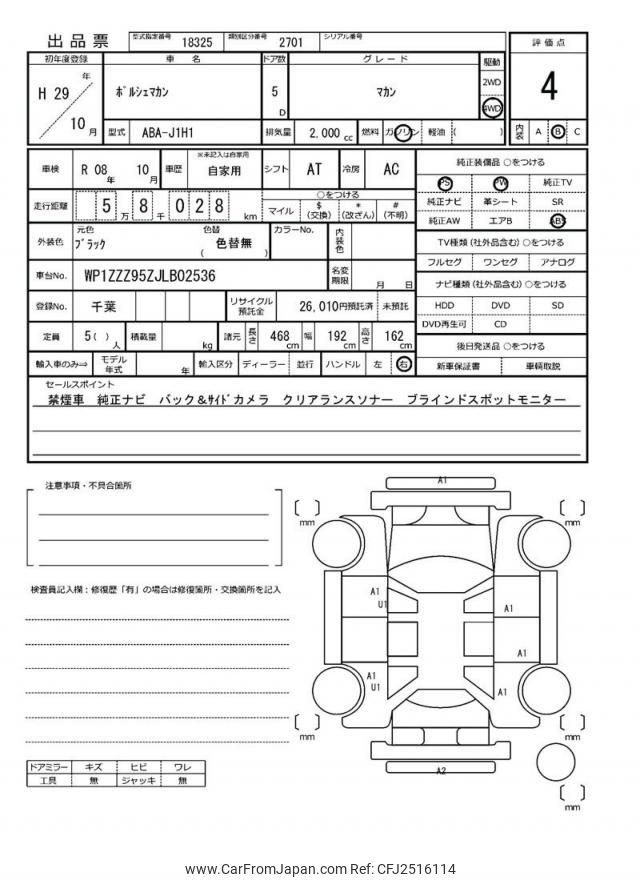 出品票 型式指定番号 18325 類別区分番号 2701 シリアル番号
初年度登録 車名 ドア数 グレード 駆動 評価点
H 29 年 10 月 ポルシェマカン 5 D マカン 2WD 4WD 4
型式 ABA-J1H1 排気量 2,000 cc 燃料 ガソリン 軽油 ( ) 内装 A B C
車検 R 08 年 10 月 車歴 ※未記入は自家用 自家用 シフト AT 冷房 AC 純正装備品 ○をつける
PS PW 純正TV
走行距離 5 万 8 千 0 2 8 km ○をつける
マイル $ (交換) * (改ざん) # (不明)
純正ナビ 革シート SR
純正AW エアB ABS
外装色 元色 ブラック 色替 ( 色替無 ) カラーNo. 内装色
TV種類 (社外品含む) ○をつける
フルセグ ワンセグ アナログ
車台No. WP1ZZZ95ZJLB02536 名変期限 月 日
ナビ種類 (社外品含む) ○をつける
HDD DVD SD
DVD再生可 CD
登録No. 千葉 リサイクル預託金 26,010 円預託済 未預託
定員 5( ) 人 積載量 kg 諸元 長さ 468 cm 幅 192 cm 高さ 162 cm
後日発送品 ○をつける
輸入車のみ⇒ モデル年式 年 輸入区分 ディーラー 並行 ハンドル 左 右
新車保証書 車輌取説
セールスポイント
禁煙車 純正ナビ バック&サイドカメラ クリアランスソナー ブラインドスポットモニター
注意事項・不具合箇所
検査員記入欄:修復歴「有」の場合は修復箇所・交換箇所を記入
A1
mm
mm
A1
U1
A1
A1
A1
U1
A1
mm
mm
A2
mm
ドアミラー キズ ヒビ ワレ
工具 無 ジャッキ 無
www.CarFromJapan.com Ref: CFJ2516114